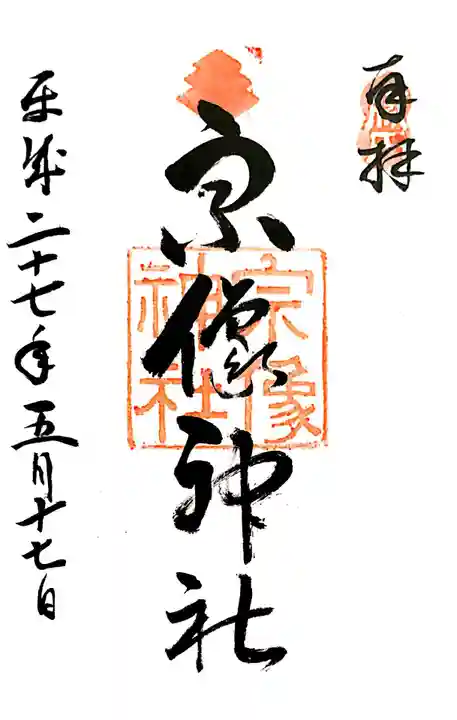 奉拝
宗像神社
宗像
神社
平成二十七年五月十七日